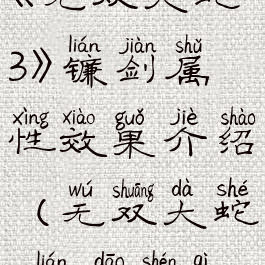 《无双大蛇
lián jiàn shǔ
3》镰剑属
xìng xiào guǒ jiè shào
性效果介绍
wú shuāng dà shé
（无双大蛇
lián dāo shén qì